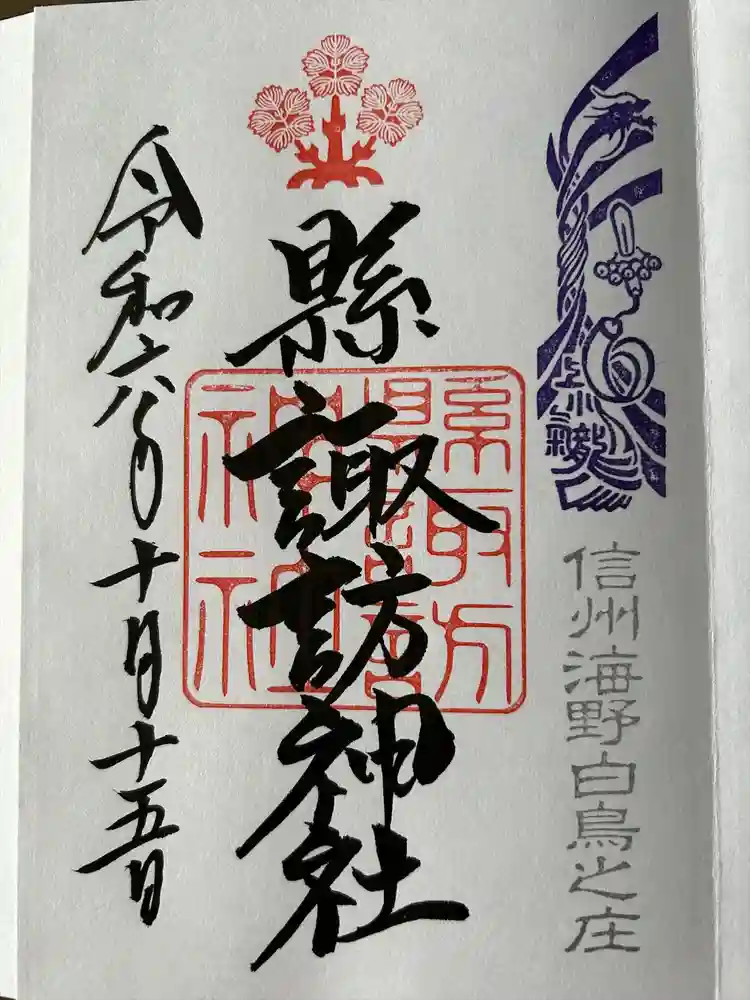 上小
信州海野白鳥之庄
縣諏訪神社
縣諏訪
神社
令和六年十月十五日